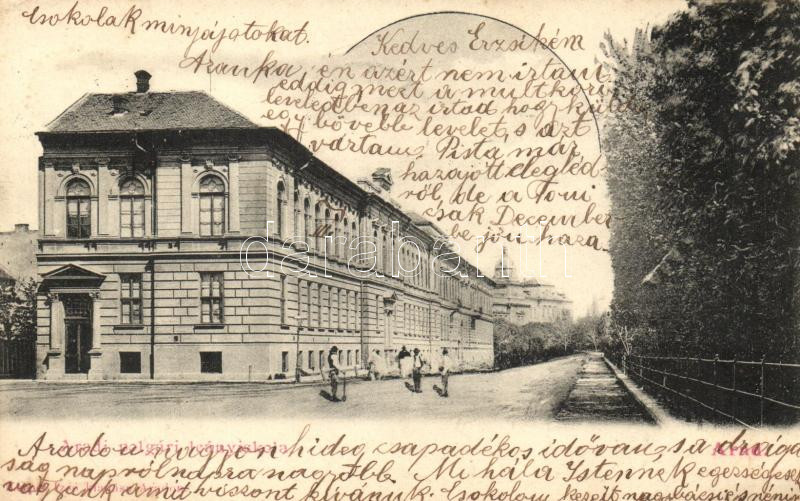 Csokolak mindnyájotokat.
Kedves Erzsikém
Aranka, én azért nem irtam
eddig mert a multkori
leveledben az irtad hogy
egy bővebb levelet, s azt
vártam. Pista már
hazajött Cegléd-
ről, de a Toni
csak December
be jön haza.
darabanth
Aradi polgári leányiskola
Arad
Aradon nagyon hideg csapadékos idő van, s a drága
ság napról napra nagyobb. Mihála Istennek egészsége
vagyunk amit viszont kivánunk. Csokolom kezeit